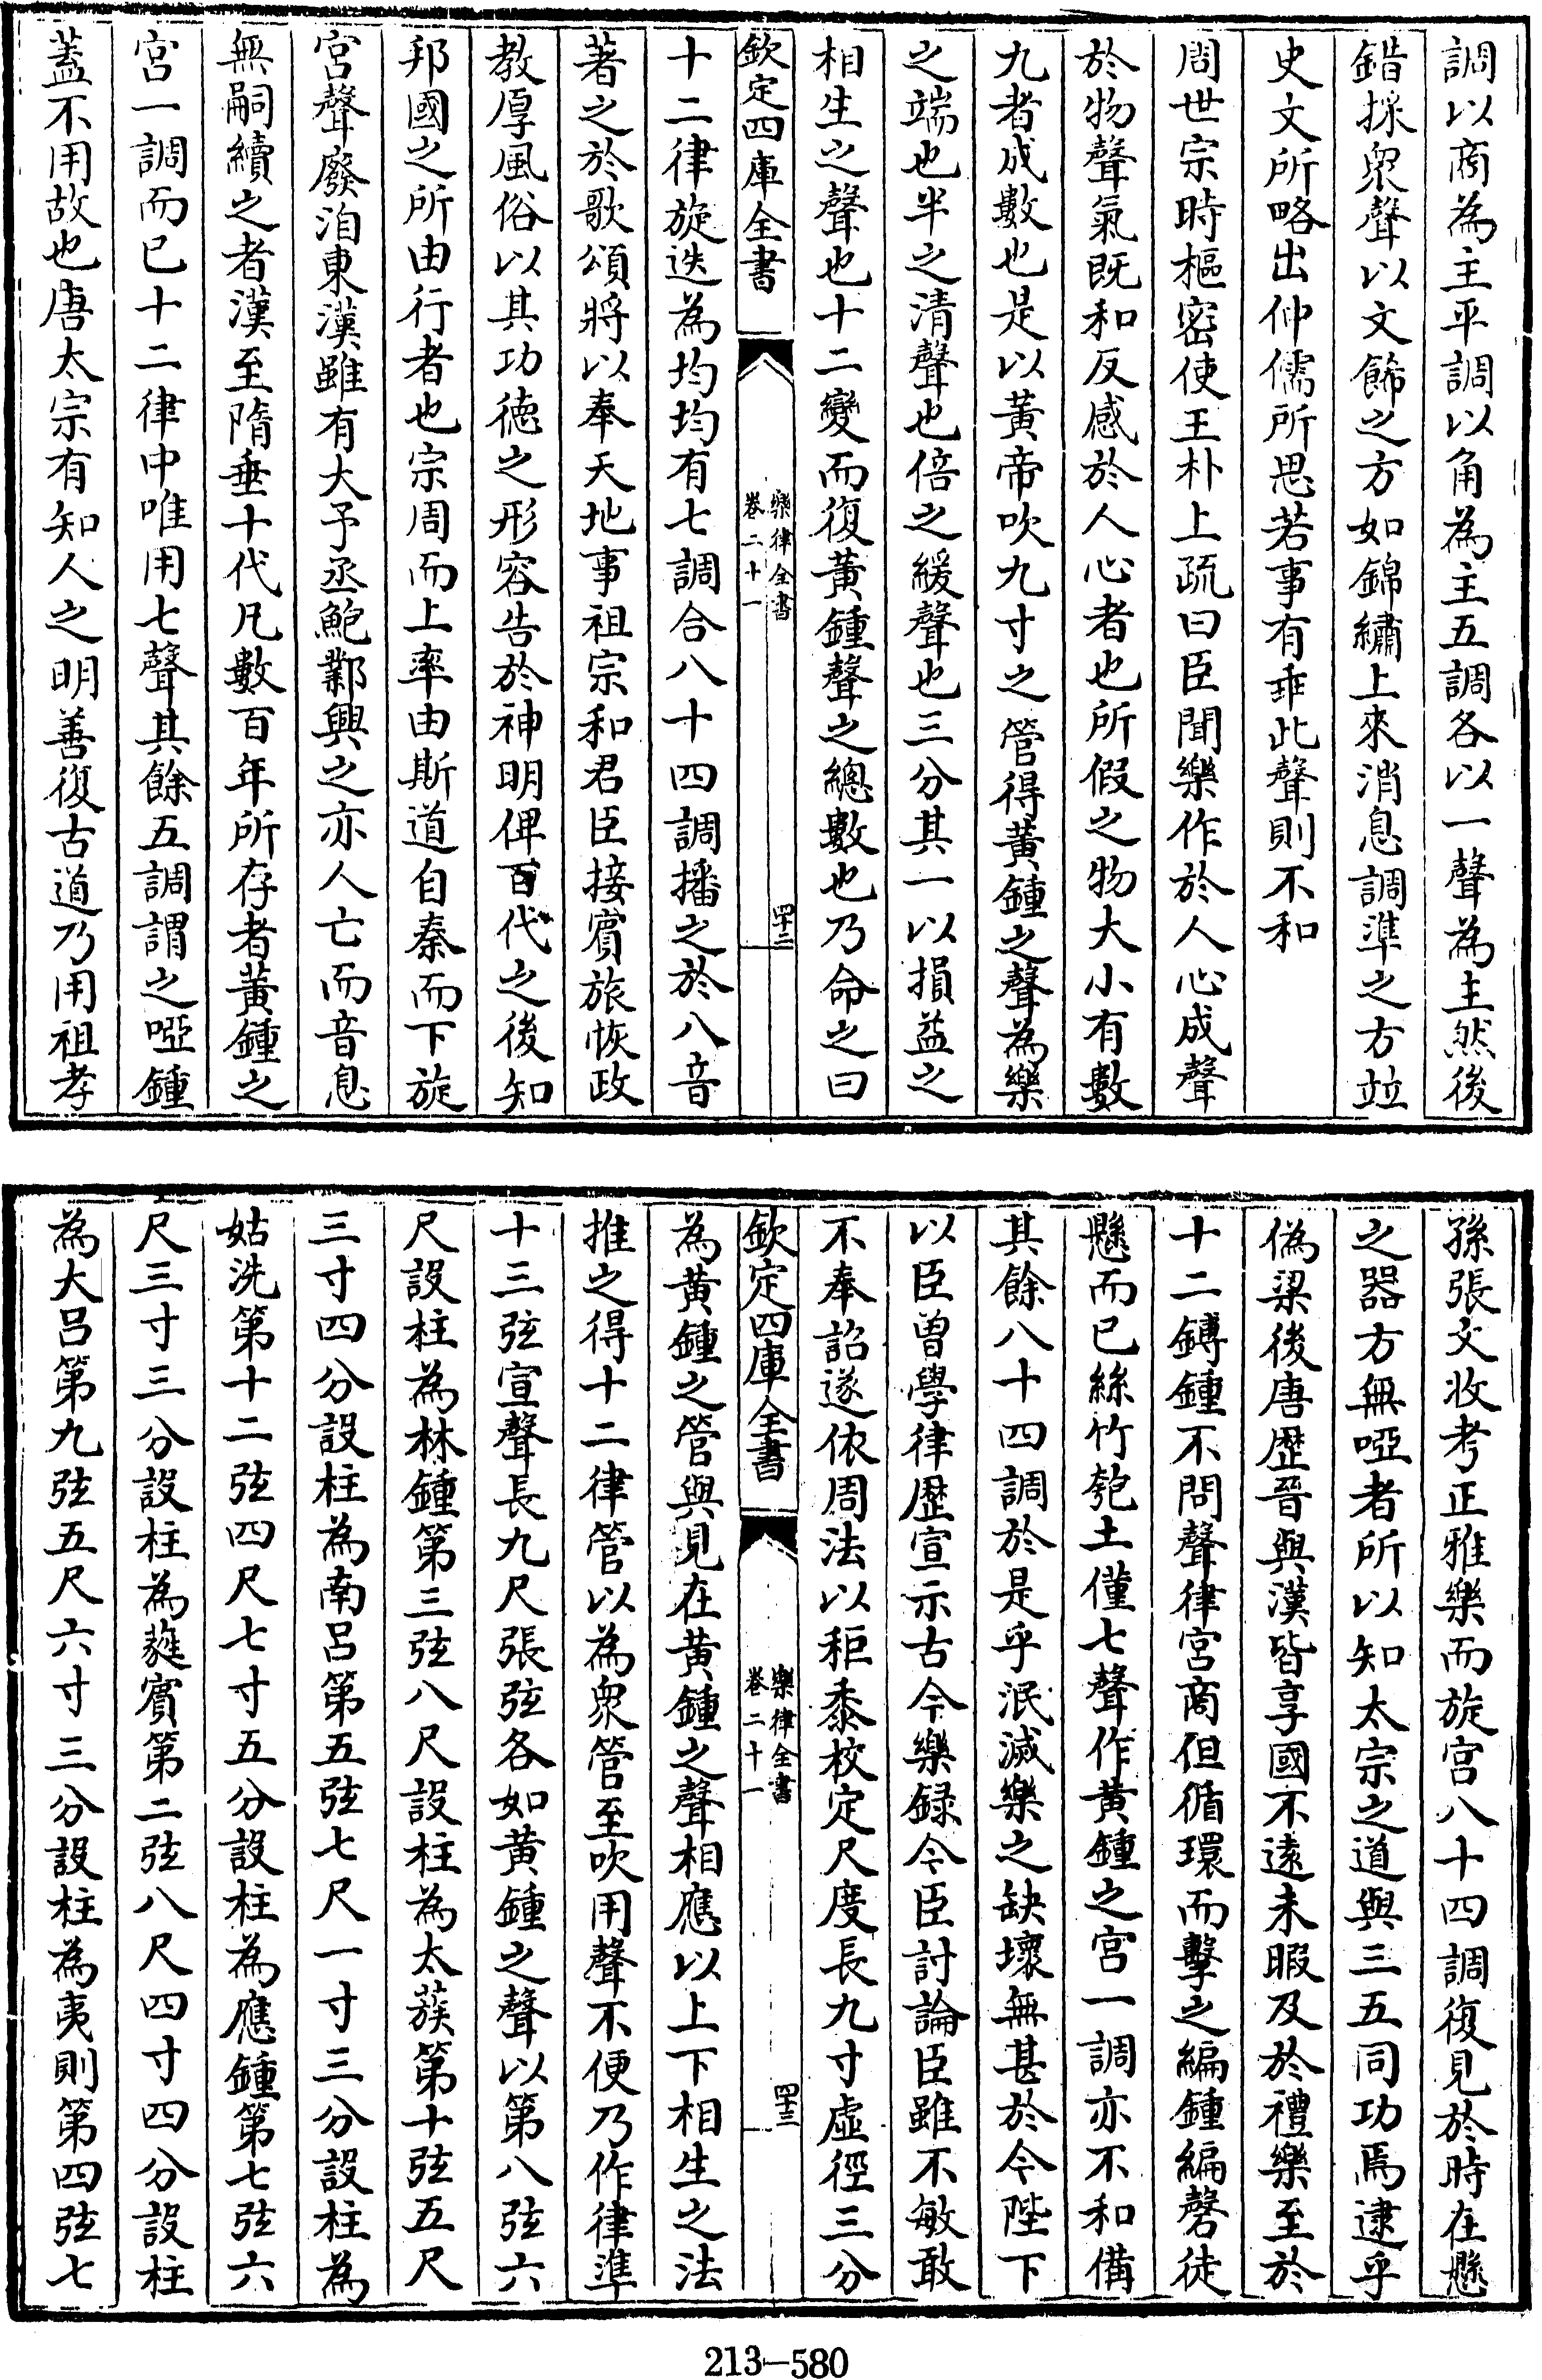 調以商為主平調以角為主五調各以一聲為主然後
錯採衆聲以文飾之方如錦繡上來消息調準之方竝
史文所略出仲儒所思若事有乖此聲則不和
周世宗時樞密使王朴上疏曰臣聞樂作於人心成聲
於物聲氣既和反感於人心者也所假之物大小有數
九者成數也是以黃帝吹九寸之管得黃鍾之聲為樂
之端也半之清聲也倍之緩聲也三分其一以損益之
相生之聲也十二變而復黃鍾聲之總數也乃命之曰
欽定四庫全書
樂律全書
卷二十一
四十二
十二律旋迭為均均有七調合八十四調播之於八音
著之於歌頌將以奉天地事祖宗和君臣接賓旅恢政
教厚風俗以其功德之形容告於神明俾百代之後知
邦國之所由行者也宗周而上率由斯道自秦而下旋
宮聲廢洎東漢雖有大予丞鮑鄴興之亦人亡而音息
無嗣續之者漢至隋垂十代凡數百年所存者黃鍾之
宮一調而已十二律中唯用七聲其餘五調謂之啞鍾
蓋不用故也唐太宗有知人之明善復古道乃用祖孝
孫張文收考正雅樂而旋宮八十四調復見於時在懸
之器方無啞者所以知太宗之道與三五同功焉逮乎
偽梁後唐歷晉與漢皆享國不遠未暇及於禮樂至於
十二鎛鍾不問聲律宮商但循環而擊之編鍾編磬徒
懸而已絲竹匏土僅七聲作黃鍾之宮一調亦不和備
其餘八十四調於是乎泯滅樂之缺壞無甚於今陛下
以臣曾學律歷宣示古今樂録令臣討論臣雖不敏敢
不奉詔遂依周法以秬黍校定尺度長九寸虛徑三分
欽定四庫全書
樂律全書
卷二十一
四十三
為黃鍾之管與見在黃鍾之聲相應以上下相生之法
推之得十二律管以為衆管至吹用聲不便乃作律準
十三弦宣聲長九尺張弦各如黃鍾之聲以第八弦六
尺設柱為林鍾第三弦八尺設柱為太蔟第十弦五尺
三寸四分設柱為南呂第五弦七尺一寸三分設柱為
姑洗第十二弦四尺七寸五分設柱為應鍾第七弦六
尺三寸三分設柱為蕤賓第二弦八尺四寸四分設柱
為大呂第九弦五尺六寸三分設柱為夷則第四弦七
213—580